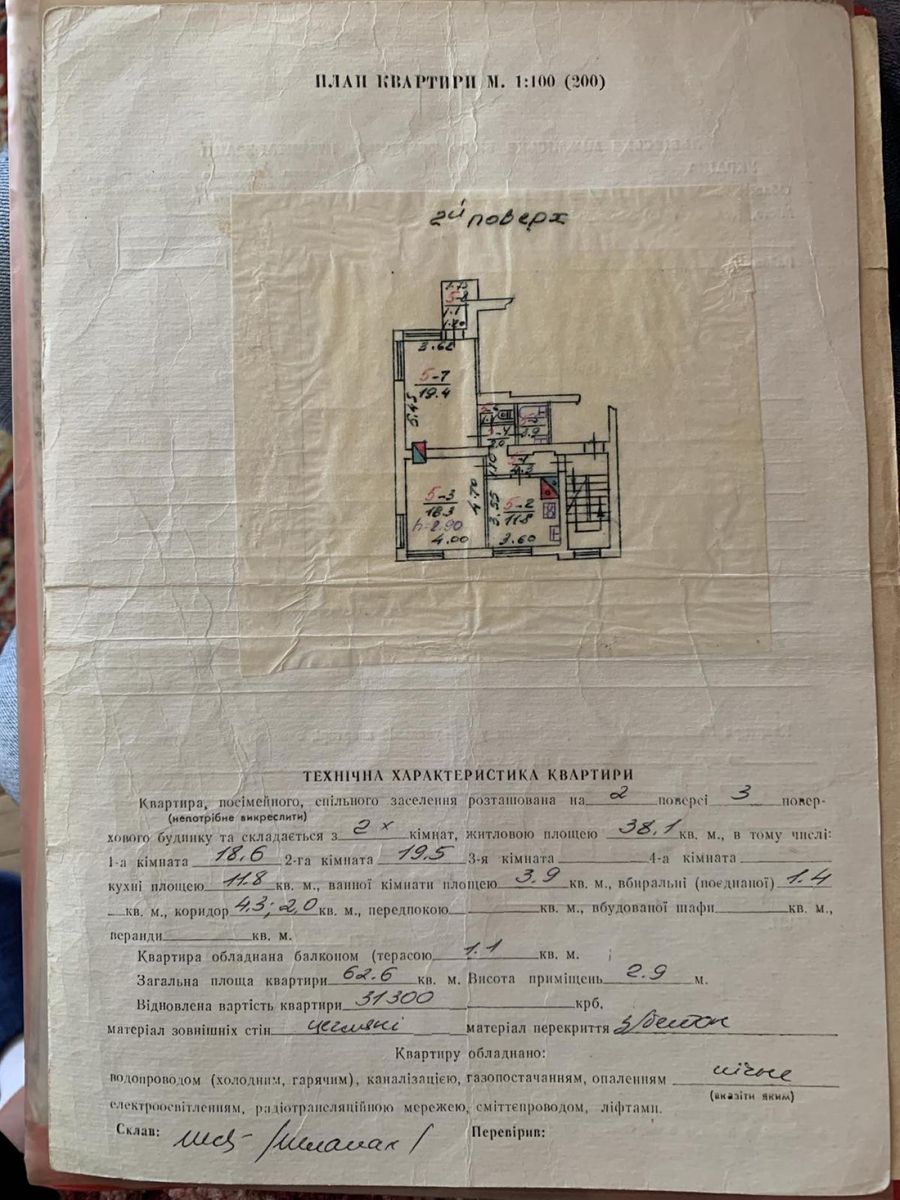 ПЛАН КВАРТИРИ М. 1:100 (200)
2й поверх
5-8
1.1
3.62
5-7
19.4
5.45
3.9
5-3
18.3
h-2.90
4.70
4.00
3.55
5-2
11.8
3.60
ТЕХНІЧНА ХАРАКТЕРИСТИКА КВАРТИРИ
Квартира, посімейного, спільного заселення розташована на 2 поверсі 3 повер-
(непотрібне викреслити)
хового будинку та складається з 2х кімнат, житловою площею 38,1 кв. м., в тому числі:
1-а кімната 18,6 2-га кімната 19,5 3-я кімната 4-а кімната
кухні площею 11.8 кв. м., ванної кімнати площею 3.9 кв. м., вбиральні (поєднаної) 1.4
кв. м., коридор 4.3; 2,0 кв. м., передпокою кв. м., вбудованої шафи кв. м.,
веранди кв. м.
Квартира обладнана балконом (терасою 1.1 кв. м.
Загальна площа квартири 62.6 кв. м. Висота приміщень 2.9 м.
Відновлена вартість квартири 31300 крб,
матеріал зовнішніх стін цегляні матеріал перекриття з/бетон
Квартиру обладнано:
водопроводом (холодним, гарячим), каналізацією, газопостачанням, опаленням пічне
(вказіти яким)
електроосвітленням, радіотрансляційною мережею, сміттєпроводом, ліфтами.
Склав: Перевірив: